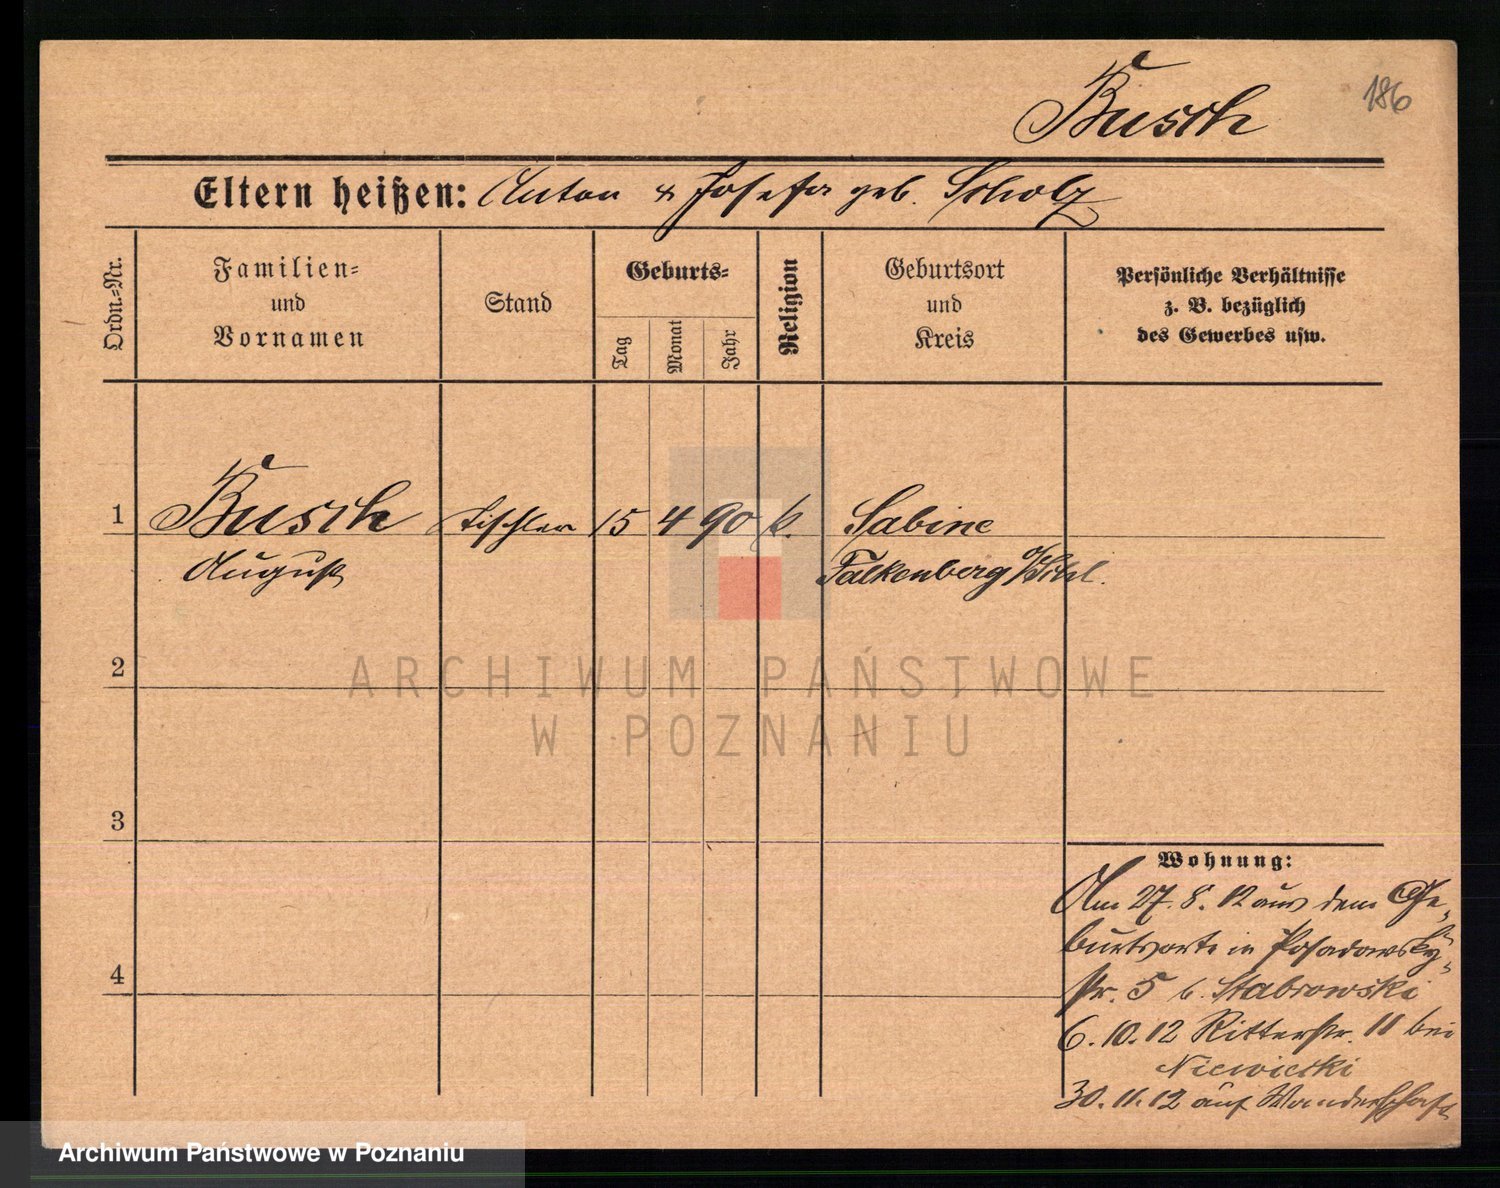 Busch
186
Eltern heißen: Anton & Josefa geb. Scholz
Ordn.=Nr.
Familien=
und
Vornamen
Stand
Geburts=
Tag
Monat
Jahr
Religion
Geburtsort
und
Kreis
Persönliche Verhältnisse
z. B. bezüglich
des Gewerbes usw.
1 Busch Tischler 15 4 90 k. Sabine
August Falkenberg
2
3
4
Wohnung:
Am 27. 8. 12 aus dem Ge-
burtsorte in Posadowsky-
str. 5 b. Stabrowski
6. 10. 12 Ritterstr. 11 bei
Niewiecki
30. 11. 12 auf Wanderschaft
ARCHIWUM PAŃSTWOWE
W POZNANIU
Archiwum Państwowe w Poznaniu